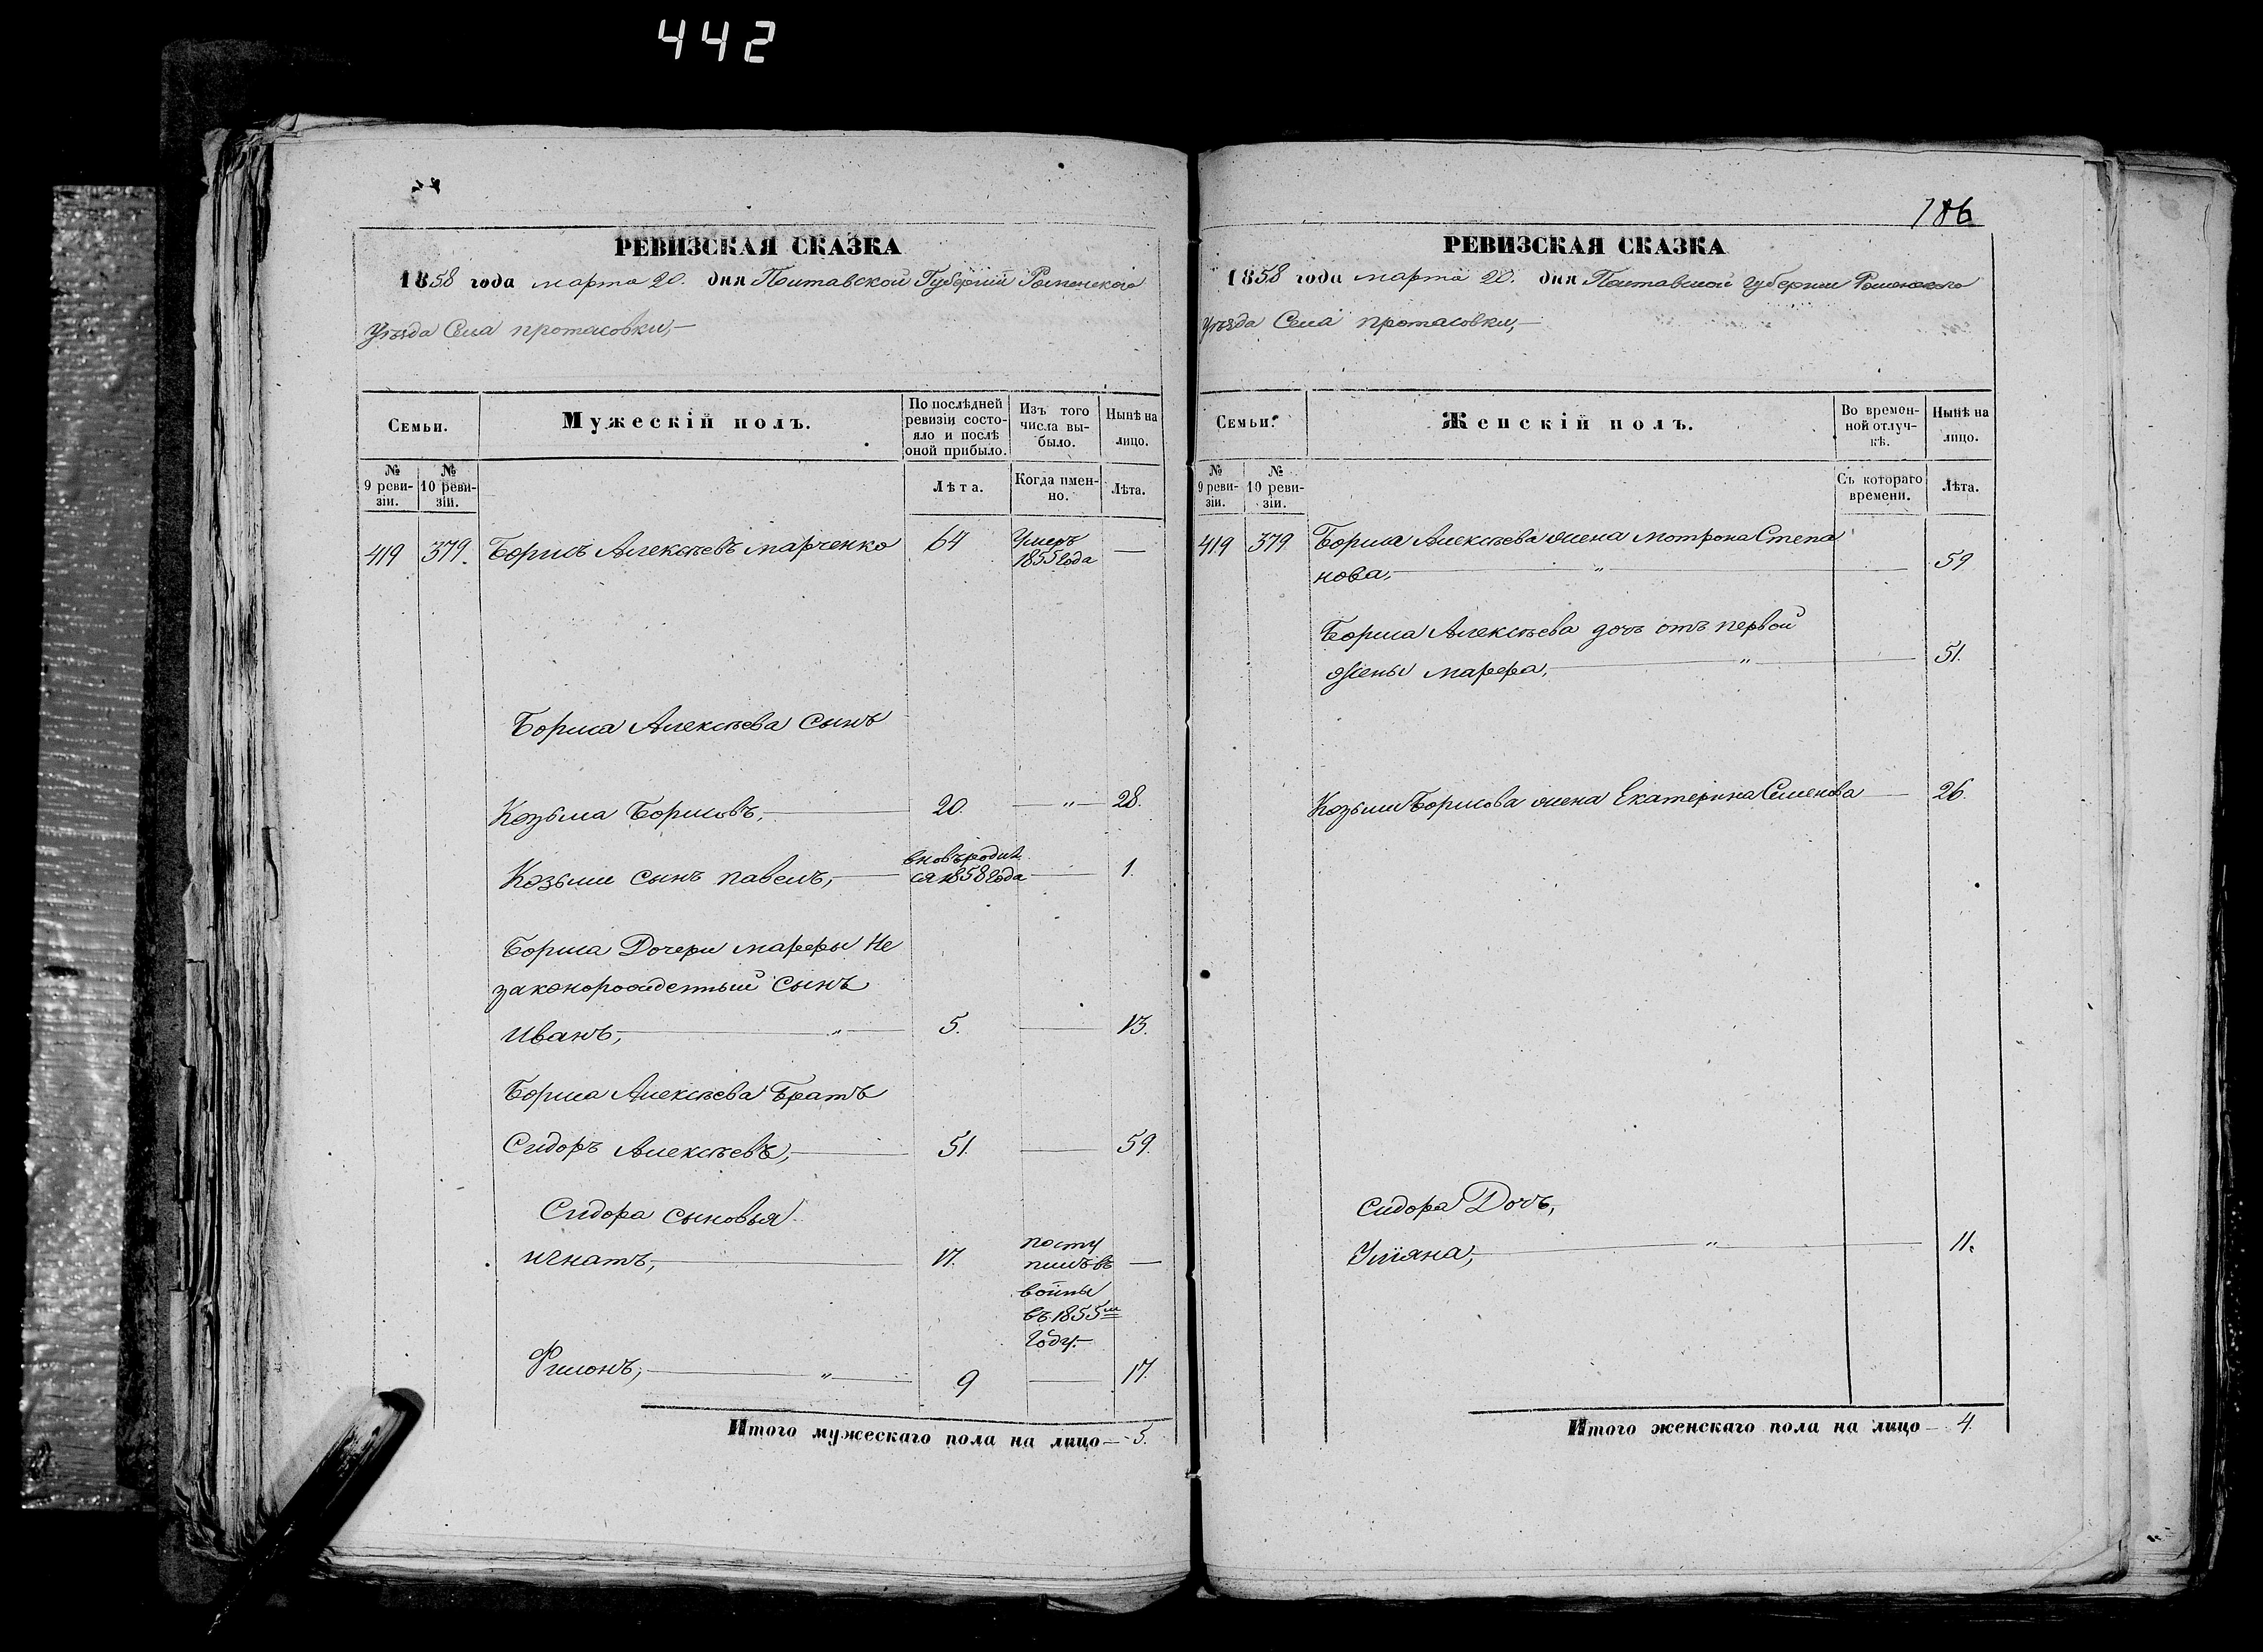 442
РЕВИЗСКАЯ СКАЗКА
1858 года марта 20. дня Полтавской Губерніи Роменского
Уѣзда Села протасовки,—
Семьи.
Мужескій полъ.
По послѣдней ревизіи состояло и послѣ оной прибыло.
Изъ того числа выбыло.
Нынѣ на лицо.
№ 9 ревизіи.
№ 10 ревизіи.
Лѣта.
Когда именно.
Лѣта.
419 379. Борисъ Алексѣевъ марченко 64 Умеръ 1855 года —
Бориса Алексѣева Сынъ
Козьма Борисовъ,— 20. —"— 28.
Козьмы сынъ павелъ,— вновьродил ся 1858 года — 1.
Бориса Дочери марфы Не
законорожденный Сынъ
Иванъ,—"— 5. — 13.
Бориса Алексѣева Братъ
Сидоръ Алексѣевъ,— 51. — 59.
Сидора сыновья
игнатъ,— 17. посту
пилъ въ —
войны
въ 1855м
Году.—
Филонъ,—"— 9 — 17.
Итого мужескаго пола на лицо — 5.
186
РЕВИЗСКАЯ СКАЗКА
1858 года марта 20. дня Полтавской губерніи Роменского
Уѣзда Села протасовки,—
Семьи.
Женскій полъ.
Во временной отлучкѣ.
Нынѣ на лицо.
№ 9 ревизіи.
№ 10 ревизіи.
Съ котораго времени.
Лѣта.
419 379 Бориса Алексѣева жена мотрона Степа
нова,—"— 59
Бориса Алексѣева дочь отъ первой
жены марфа,—"— 51.
Козьмы Борисова жена Екатерина Семенова — 26.
Сидора Дочь,
Улияна,—"— 11.
Итого женскаго пола на лицо — 4.